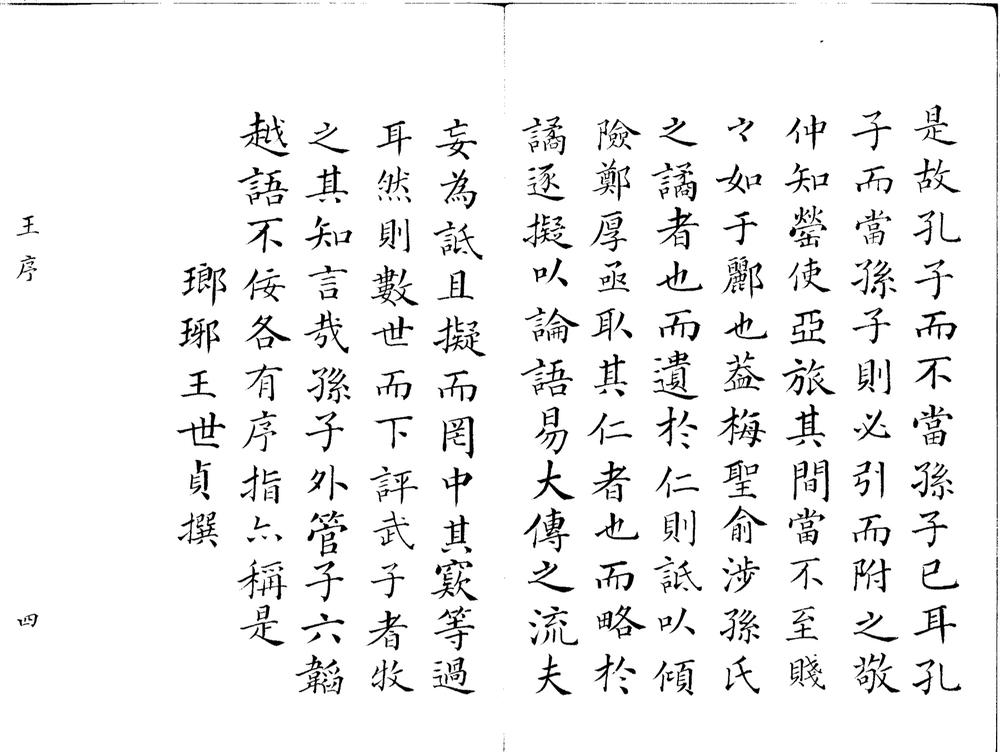 是故孔子而不當孫子已耳孔
子而當孫子則必引而附之敬
仲知罃使亞旅其間當不至賤
〻如于酈也葢梅聖俞涉孫氏
之譎者也而遺於仁則詆以傾
險鄭厚亟取其仁者也而略於
譎逐擬以論語易大傳之流夫
妄為詆且擬而罔中其窾等過
耳然則數世而下評武子者牧
之其知言哉孫子外管子六韜
越語不佞各有序指亦稱是
瑯琊王世貞撰
王序
四